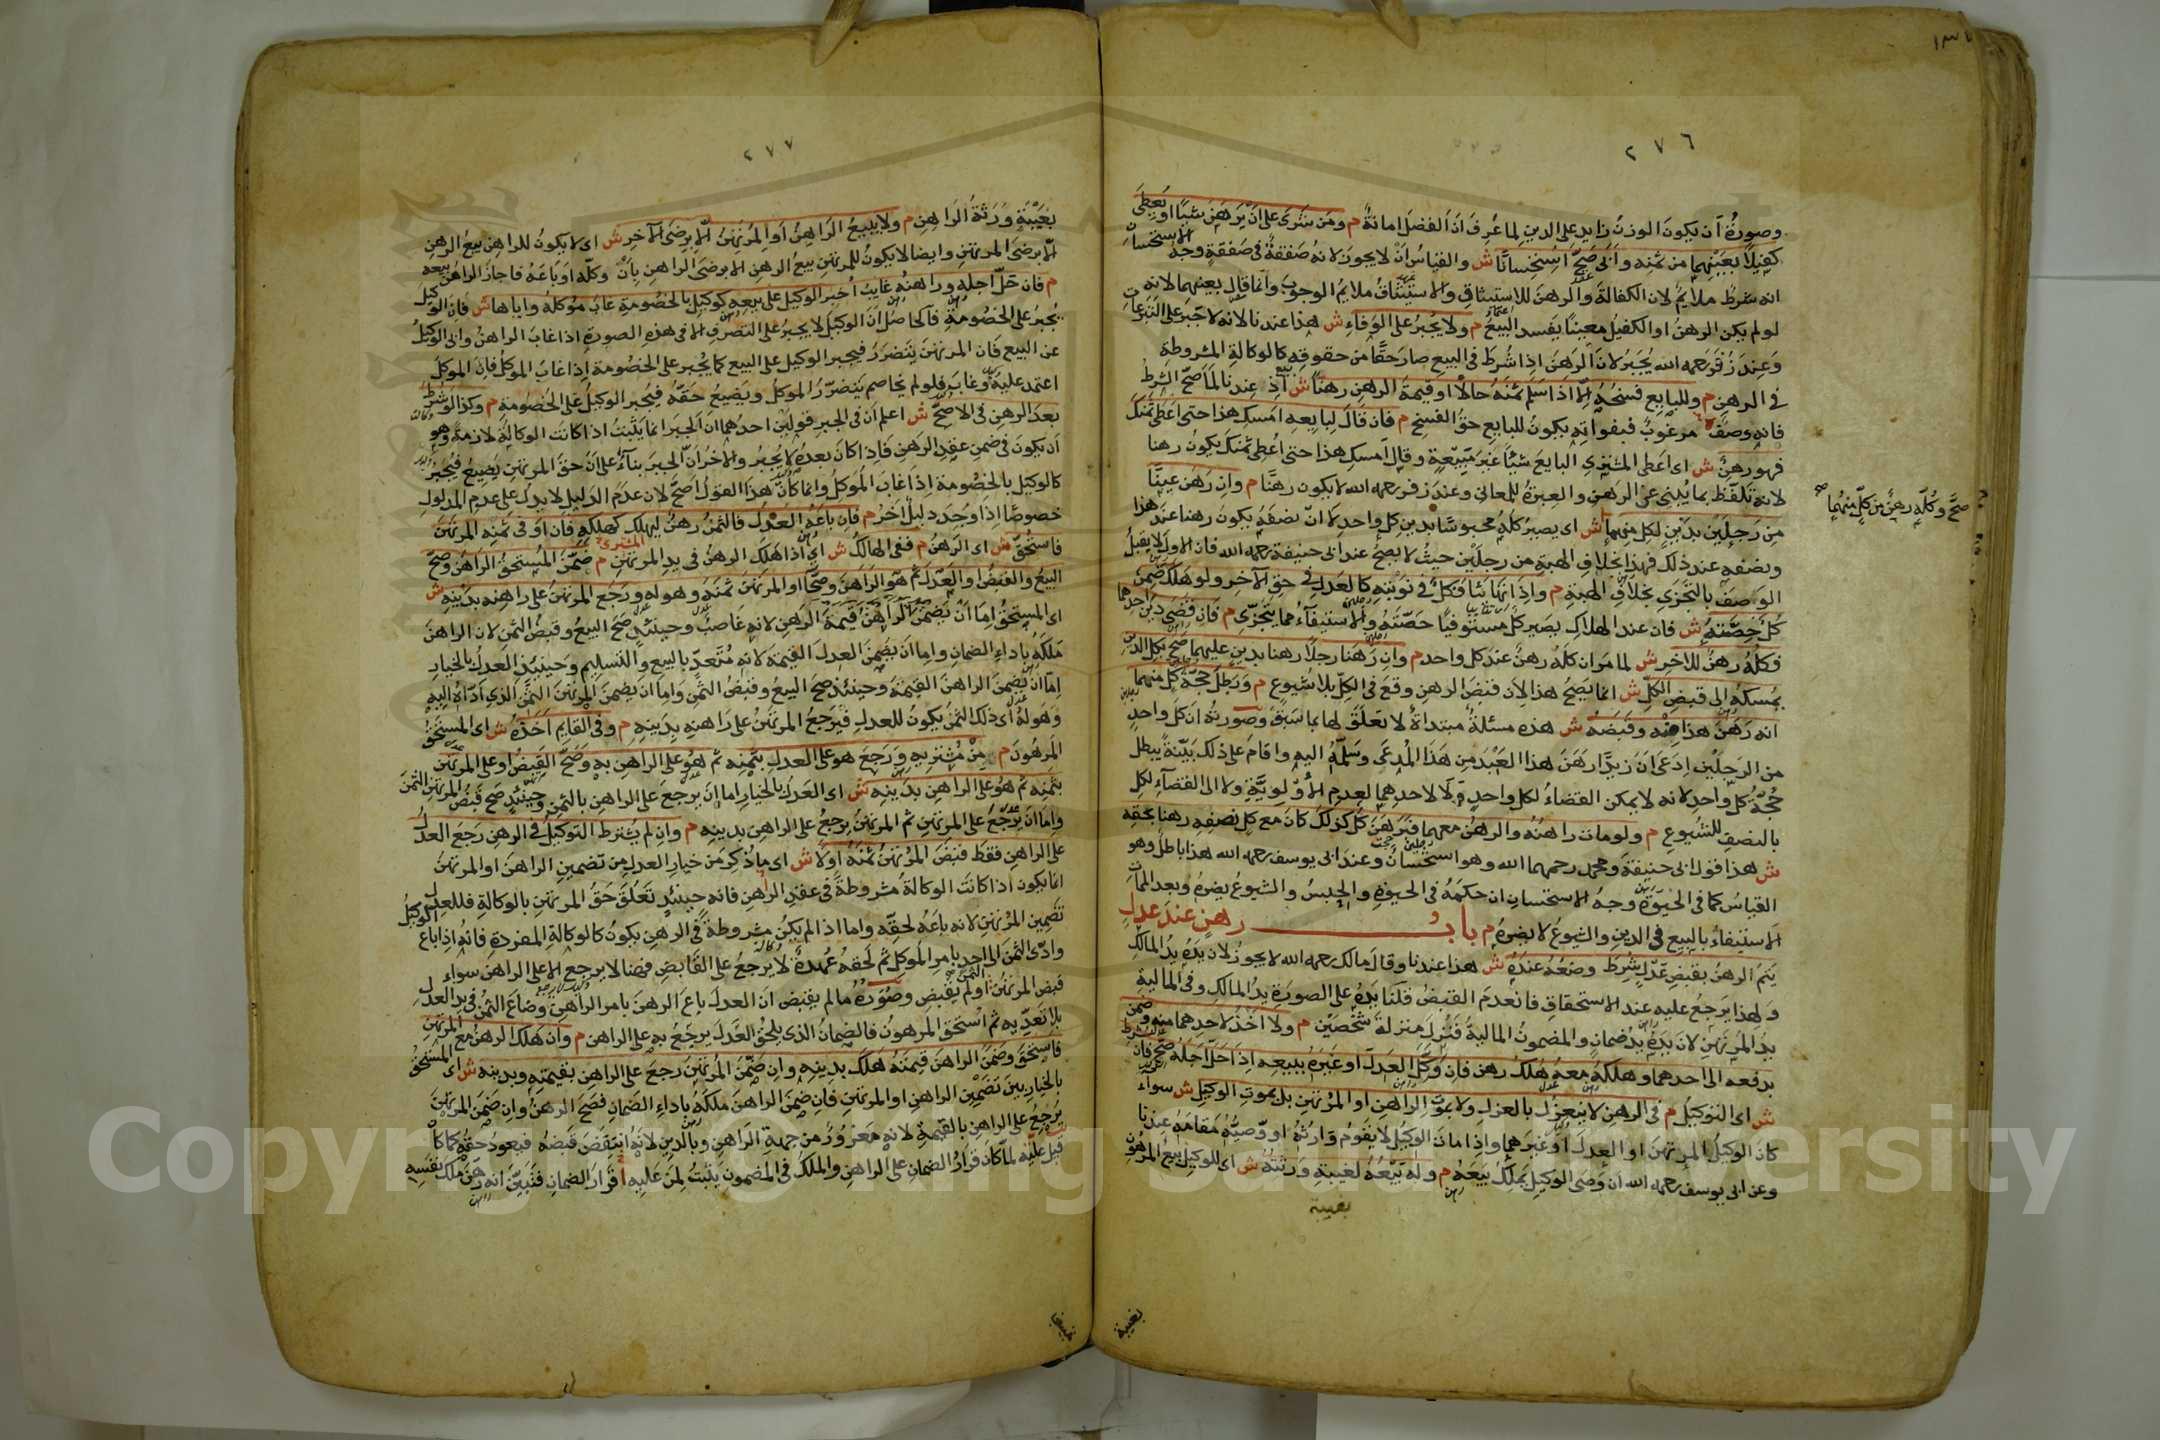 ٢٧٦
وصورته ان يكون الوزن زايد على الدين لما عرف ان الفضل امانة م ومن شرى على ان يرهن شيئا او يعطى
كفيلا بعينهما من ثمنه وابى صح استحسانا ش والقياس ان لا يجوز لانه صفقة في صفقة وجه الاستحسان
انه شرط ملايم لان الكفالة والرهن للاستيثاق والاستيثاق ملايم الوجوب وانما قال بعينهما لانه
لو لم يكن الرهن او الكفيل معينا يفسد البيع م ولا يجبر على الوفاء ش هذا عندنا لانه لا جبر على التبرعات
وعند زفر رحمه الله يجبر لان الرهن اذا شرط في البيع صار حقا من حقوقه كالوكالة المشروطة
في الرهن م وللبايع فسخه الا اذا سلم ثمنه حالا او قيمة الرهن رهنا ش اذ عندنا لما صح الشرط
فانه وصف مرغوب فبفواته يكون للبايع حق الفسخ م فان قال لبايعه امسك هذا حتى اعطى ثمنك
فهو رهن ش اى اعطى المشترى البايع شيئا غير مبيعه وقال امسك هذا حتى اعطى ثمنك يكون رهنا
لانه تلفظ بما يبنى عن الرهن والعبرة للمعانى وعند زفر رحمه الله لا يكون رهنا م وان رهن عينا
من رجلين بدين لكل منهما ش اى يصير كله محبوسا بدين كل واحد لا ان نصفه يكون رهنا عند هذا
ونصفه عند ذلك فهذا بخلاف الهبة من رجلين حيث لا يصح عند ابى حنيفة رحمه الله فان الاول لا يقبل
الوصف بالتجزى بخلاف الهبة م واذا تهايئا فكل في نوبته كالعدل في حق الآخر ولو هلك ضمن
كل حصته ش فان عند الهلاك يصير كل مستوفيا حصته والاستيفاء مما يتجزى م فان قضى دين احدهما
فكله رهن للآخر ش لما مر ان كله رهن عند كل واحد م وان رهنا رجلا رهنا بدين عليهما صح بكل الدين
يمسكه الى قبض الكل ش انما يصح هذا لان قبض الرهن وقع في الكل بلا شيوع م وبطل حجة كل منهما
انه رهن هذا منه وقبضه ش هذه مسئلة مبتداة لا تعلق لها بما سبق وصورته ان كل واحد
من الرجلين ادعى ان زيدا رهن هذا العبد من هذا المدعى وسلمه اليه واقام على ذلك بينة يبطل
حجة كل واحد لانه لا يمكن القضاء لكل واحد ولا لاحدهما لعدم الاولوية ولا الى القضاء لكل
بالنصف للشيوع م ولو مات راهنه والرهن معهما فبرهن كل كذلك كان مع كل نصفه رهنا بحقه
ش هذا قول ابى حنيفة ومحمد رحمهما الله وهو استحسان وعند ابى يوسف رحمه الله هذا باطل وهو
القياس كما في الحيوة وجه الاستحسان ان حكمه في الحيوة والحبس والشيوع يضره وبعد الممات
الاستيفاء بالبيع في الدين والشيوع لا يضره م باب رهن عند عدل
يتم الرهن بقبض عدل شرط وضعه عنده ش هذا عندنا وقال مالك رحمه الله لا يجوز لان يده يد المالك
ولهذا يرجع عليه عند الاستحقاق فانعدم القبض قلنا يده على الصورة يد المالك وفي المالية
يد المرتهن لان يده يد ضمان والمضمون المالية فنزل منزلة شخصين م ولا اخذ لاحدهما منه وضمن
بدفعه الى احدهما وهلكه معه هلك رهن فان وكل العدل او غيره ببيعه اذا حل اجله صح فان شرط
ش اى التوكيل م في الرهن لا ينعزل بالعزل ولا بموت الراهن او المرتهن بل بموت الوكيل ش سواء
كان الوكيل المرتهن او العدل او غيرهما واذا مات الوكيل لا يقوم وارثه او وصيه مقامه عندنا
وعن ابى يوسف رحمه الله ان وصى الوكيل يملك بيعه م وله بيعه لغيبة ورثته ش اى للوكيل بيع المرهون
بغيبة
صح وكله رهن من كل منهما
٢٧٧
بغيبة ورثة الراهن م ولا يبيع الراهن او المرتهن الا برضى الآخر ش اى لا يكون للراهن بيع الرهن
الا برضى المرتهن وايضا لا يكون للمرتهن بيع الرهن الا برضى الراهن بان وكله او باعه فاجاز الراهن بيعه
م فان حل اجله وراهنه غايب اجبر الوكيل على بيعه كوكيل بالخصومة غاب موكله واباها ش فان الوكيل
يجبر على الخصومة فالحاصل ان الوكيل لا يجبر على التصرف الا في هذه الصورة اذا غاب الراهن وابى الوكيل
عن البيع فان المرتهن يتضرر فيجبر الوكيل على البيع كما يجبر على الخصومة اذا غاب الموكل فان الموكل
اعتمد عليه وغاب فلو لم يخاصم يتضرر الموكل ويضيع حقه فيجبر الوكيل على الخصومة م وكذا لو شرط
بعد الرهن في الاصح ش اعلم ان في الجبر قولين احدهما ان الجبر انما يثبت اذا كانت الوكالة لازمة وهو
ان يكون في ضمن عقد الرهن فاذا كان بعده لا يجبر والآخر ان الجبر بناء على ان حق المرتهن يضيع فيجبر
كالوكيل بالخصومة اذا غاب الموكل وانما كان هذا القول اصح لان عدم الدليل لا يدل على عدم المدلول
خصوصا اذا وجد دليل آخر م فان باعه العدل فالثمن رهن فهلكه كهلكه فان اوفى ثمنه المرتهن
فاستحق ش اى الرهن م ففى الهالك ش اى اذا هلك الرهن في يد المرتهن م ضمن المستحق الراهن وصح
البيع والقبض او العدل ثم هو الراهن وصحا او المرتهن ثمنه وهو له ورجع المرتهن على راهنه بدينه ش
اى المستحق اما ان يضمن الراهن قيمة الرهن لانه غاصب وحينئذ صح البيع وقبض الثمن لان الراهن
ملكه باداء الضمان واما ان يضمن العدل القيمة لانه متعد بالبيع والتسليم وحينئذ العدل بالخيار
اما ان يضمن الراهن القيمة وحينئذ صح البيع وقبض الثمن واما ان يضمن المرتهن الثمن الذى اداه اليه
وهو له اى ذلك الثمن يكون للعدل فيرجع المرتهن على راهنه بدينه م وفي القايم اخذه ش اى المستحق
المرهون م من مشتريه ورجع هو على العدل بثمنه ثم هو على الراهن به وصح القبض او على المرتهن
بثمنه ثم هو على الراهن بدينه ش اى العدل بالخيار اما ان يرجع على الراهن بالثمن وحينئذ صح قبض المرتهن الثمن
واما ان يرجع على المرتهن ثم المرتهن يرجع على الراهن بدينه م وان لم يشترط التوكيل في الرهن رجع العدل
على الراهن فقط قبض المرتهن ثمنه اولا ش اى ما ذكر من خيار العدل من تضمين الراهن او المرتهن
انما يكون اذا كانت الوكالة مشروطة في عقد الرهن فانه حينئذ تعلق حق المرتهن بالوكالة فللعدل
تضمين المرتهن لانه باعه لحقه واما اذا لم يكن مشروطة في الرهن يكون كالوكالة المفردة فانه اذا باع الوكيل
وادى الثمن الى احد بامر الموكل ثم لحقه عهدة لا يرجع على القابض فههنا لا يرجع الا على الراهن سواء
قبض المرتهن الثمن او لم يقبض وصورة ما لم يقبض ان العدل باع الرهن بامر الراهن وضاع الثمن في يد العدل
بلا تعديه ثم استحق المرهون فالضمان الذى يلحق العدل يرجع به على الراهن م وان هلك الرهن مع المرتهن
فاستحق وضمن الراهن قيمته هلك بدينه وان ضمن المرتهن رجع على الراهن بقيمته وبدينه ش اى المستحق
بالخيار بين تضمين الراهن او المرتهن فان ضمن الراهن ملكه باداء الضمان فصح الرهن وان ضمن المرتهن
يرجع على الراهن بالقيمة لانه مغرور من جهة الراهن وبالدين لانه انتقض قبضه فيعود حقه كما كان
قيل عليه لما كان قرار الضمان على الراهن والملك في المضمون يثبت لمن عليه قرار الضمان فتبين انه رهن ملك نفسه
Copyright © King Saud University